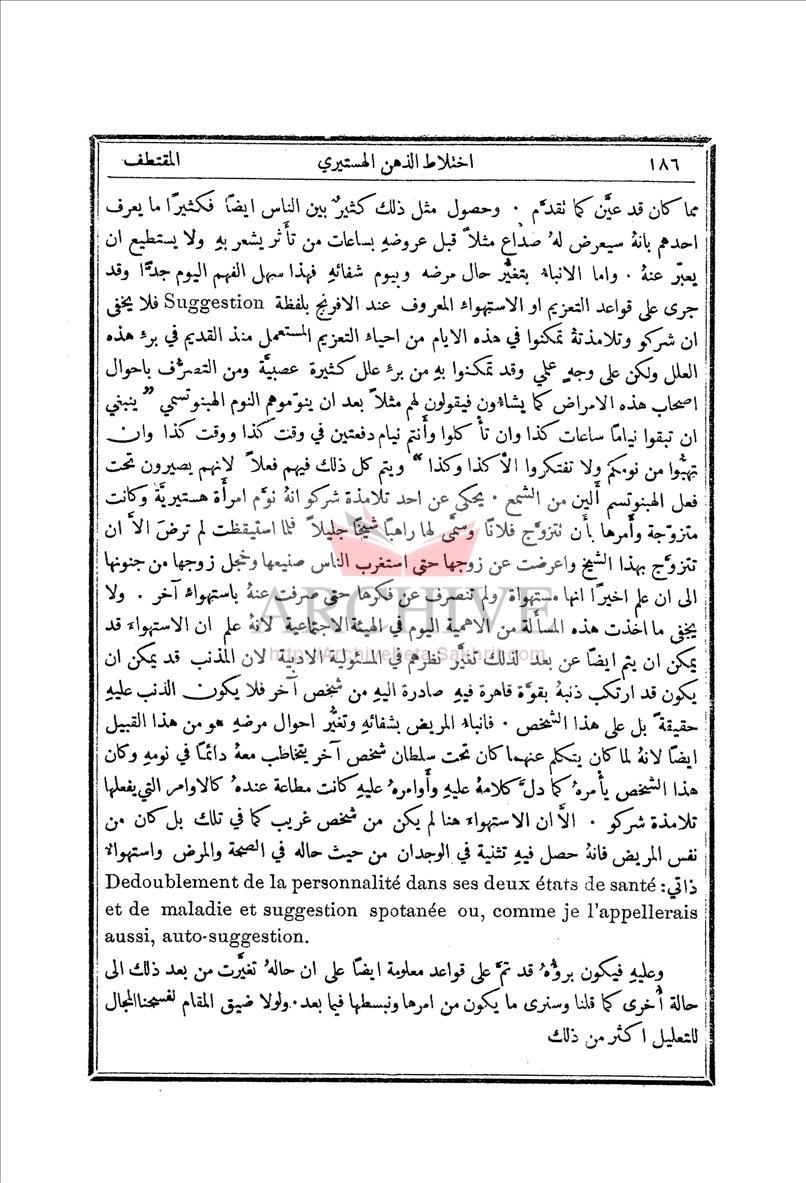 ١٨٦ اختلاط الذهن الهستيري المقتطف
مما كان قد عيَّن كما تقدَّم . وحصول مثل ذلك كثيرٌ بين الناس ايضاً فكثيرًا ما يعرف
احدهم بانهُ سيعرض لهُ صداع مثلاً قبل عروضهِ بساعات من تأثر يشعر بهِ ولا يستطيع ان
يعبّر عنهُ . واما الانباء بتغيُّر حال مرضه وبيوم شفائهِ فهذا سهل الفهم اليوم جدًّا وقد
جرى على قواعد التعزيم او الاستهواء المعروف عند الافرنج بلفظة Suggestion فلا يخفى
ان شركو وتلامذتهُ تمكنوا في هذه الايام من احياء التعزيم المستعمل منذ القديم في برءِ هذه
العلل ولكن على وجهٍ علمي وقد تمكنوا بهِ من برءِ علل كثيرة عصبيَّة ومن التصرُّف باحوال
اصحاب هذه الامراض كما يشاءُون فيقولون لهم مثلاً بعد ان ينوّموهم النوم الهبنوتسمي ” ينبغي
ان تبقوا نيامًا ساعات كذا وان تأكلوا وأنتم نيام دفعتين في وقت كذا ووقت كذا وان
تهبُّوا من نومكم ولا تفتكروا الاَّ كذا وكذا “ ويتم كل ذلك فيهم فعلاً لانهم يصيرون تحت
فعل الهبنوتسم ألين من الشمع . يحكى عن احد تلامذة شركو انهُ نوَّم امرأة هستيريَّة وكانت
متزوّجة وأَمرها بأَن تتزوَّج فلانًا وسمَّى لها راهبًا شيخًا جليلاً فلما استيقظت لم ترضَ الاَّ ان
تتزوَّج بهذا الشيخ واعرضت عن زوجها حتى استغرب الناس صنيعها وخجل زوجها من جنونها
الى ان علم اخيرًا انها مستهواة ولم تنصرف عن فكرها حتى صرفت عنهُ باستهواء آخر . ولا
يخفى ما اخذت هذه المسأَلة من الاهمية اليوم في الهيئة الاجتماعية لانهُ علم ان الاستهواء قد
يمكن ان يتم ايضاً عن بعد لذلك تغيَّر نظرهم في المسئولية الادبية لان المذنب قد يمكن ان
يكون قد ارتكب ذنبهُ بقوَّة قاهرة فيهِ صادرة اليهِ من شخص آخر فلا يكون الذنب عليهِ
حقيقةً بل على هذا الشخص . فانباءُ المريض بشفائهِ وتغيُّر احوال مرضهِ هو من هذا القبيل
ايضاً لانهُ لما كان يتكلم عنهما كان تحت سلطان شخص آخر يتخاطب معهُ دائمًا في نومهِ وكان
هذا الشخص يأْمرهُ كما دلَّ كلامهُ عليهِ وأَوامرهُ عليهِ كانت مطاعة عندهُ كالاوامر التي يفعلها
تلامذة شركو . الاَّ ان الاستهواء هنا لم يكن من شخص غريب كما في تلك بل كان من
نفس المريض فانهُ حصل فيهِ تثنية في الوجدان من حيث حاله في الصحة والمرض واستهواء
ذاتي: Dedoublement de la personnalité dans ses deux états de santé
et de maladie et suggestion spotanée ou, comme je l'appellerais
aussi, auto-suggestion.
وعليهِ فيكون بروُّهُ قد تمَّ على قواعد معلومة ايضاً على ان حالهُ تغيَّرت من بعد ذلك الى
حالة أُخرى كما قلنا وسنرى ما يكون من امرها ونبسطها فيما بعد. ولولا ضيق المقام لفسحنا المجال
للتعليل اكثر من ذلك
ARCHIVE
http://Archivebeta.Sakhrit.com